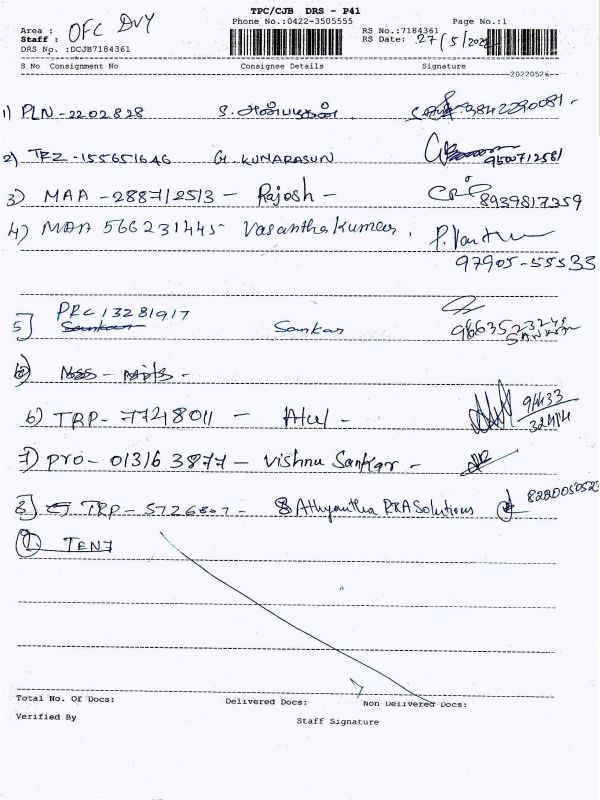 TPC/CJB DRS - P41
Area : OFC DVY Phone No.:0422-3505555 RS No.:7184361 Page No.:1
Staff : RS Date: 27/5/2022
DRS No. :DCJB7184361
S.No Consignment No Consignee Details Signature
20220526
1) PLN-2202828 S. அன்பழகன்
2) TRZ-155651646 G. KUMARASUN 9500712581
3) MAA-288712513 - Rajesh - 8939817359
4) MAA 566231445 Vasanthakumar. P. Vasanth
97905-55533
PRC 13281917
5] Sankar Sankar
SANKAR
6) TRP-7748011 - Atul -
7) PRO-013163877 - Vishnu Sankar -
8] TRP-5726807- Athyantha RKA Solutions
9. TEN7
Total No. Of Docs: Delivered Docs: Non Delivered Docs:
Verified By Staff Signature